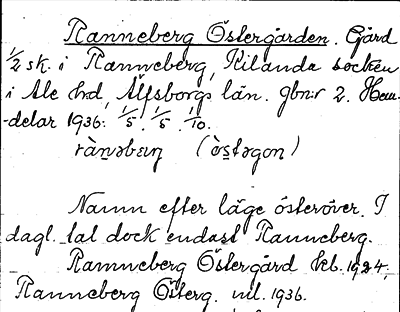 Ranneberg Östergården. Gård
1/2 sk. i Ranneberg, Kilanda socken
i Ale hd, Älfsborgs län. Gbnr 2. Hem-
-delar 1936: 1/5. 1/5. 1/10.
rànəbærj (ò̀stəgoɳ)
Namn efter läge österöver. I
dagl. tal dock endast Ranneberg.
Ranneberg Östergård kb. 1924,
Ranneberg Österg. ml. 1936.